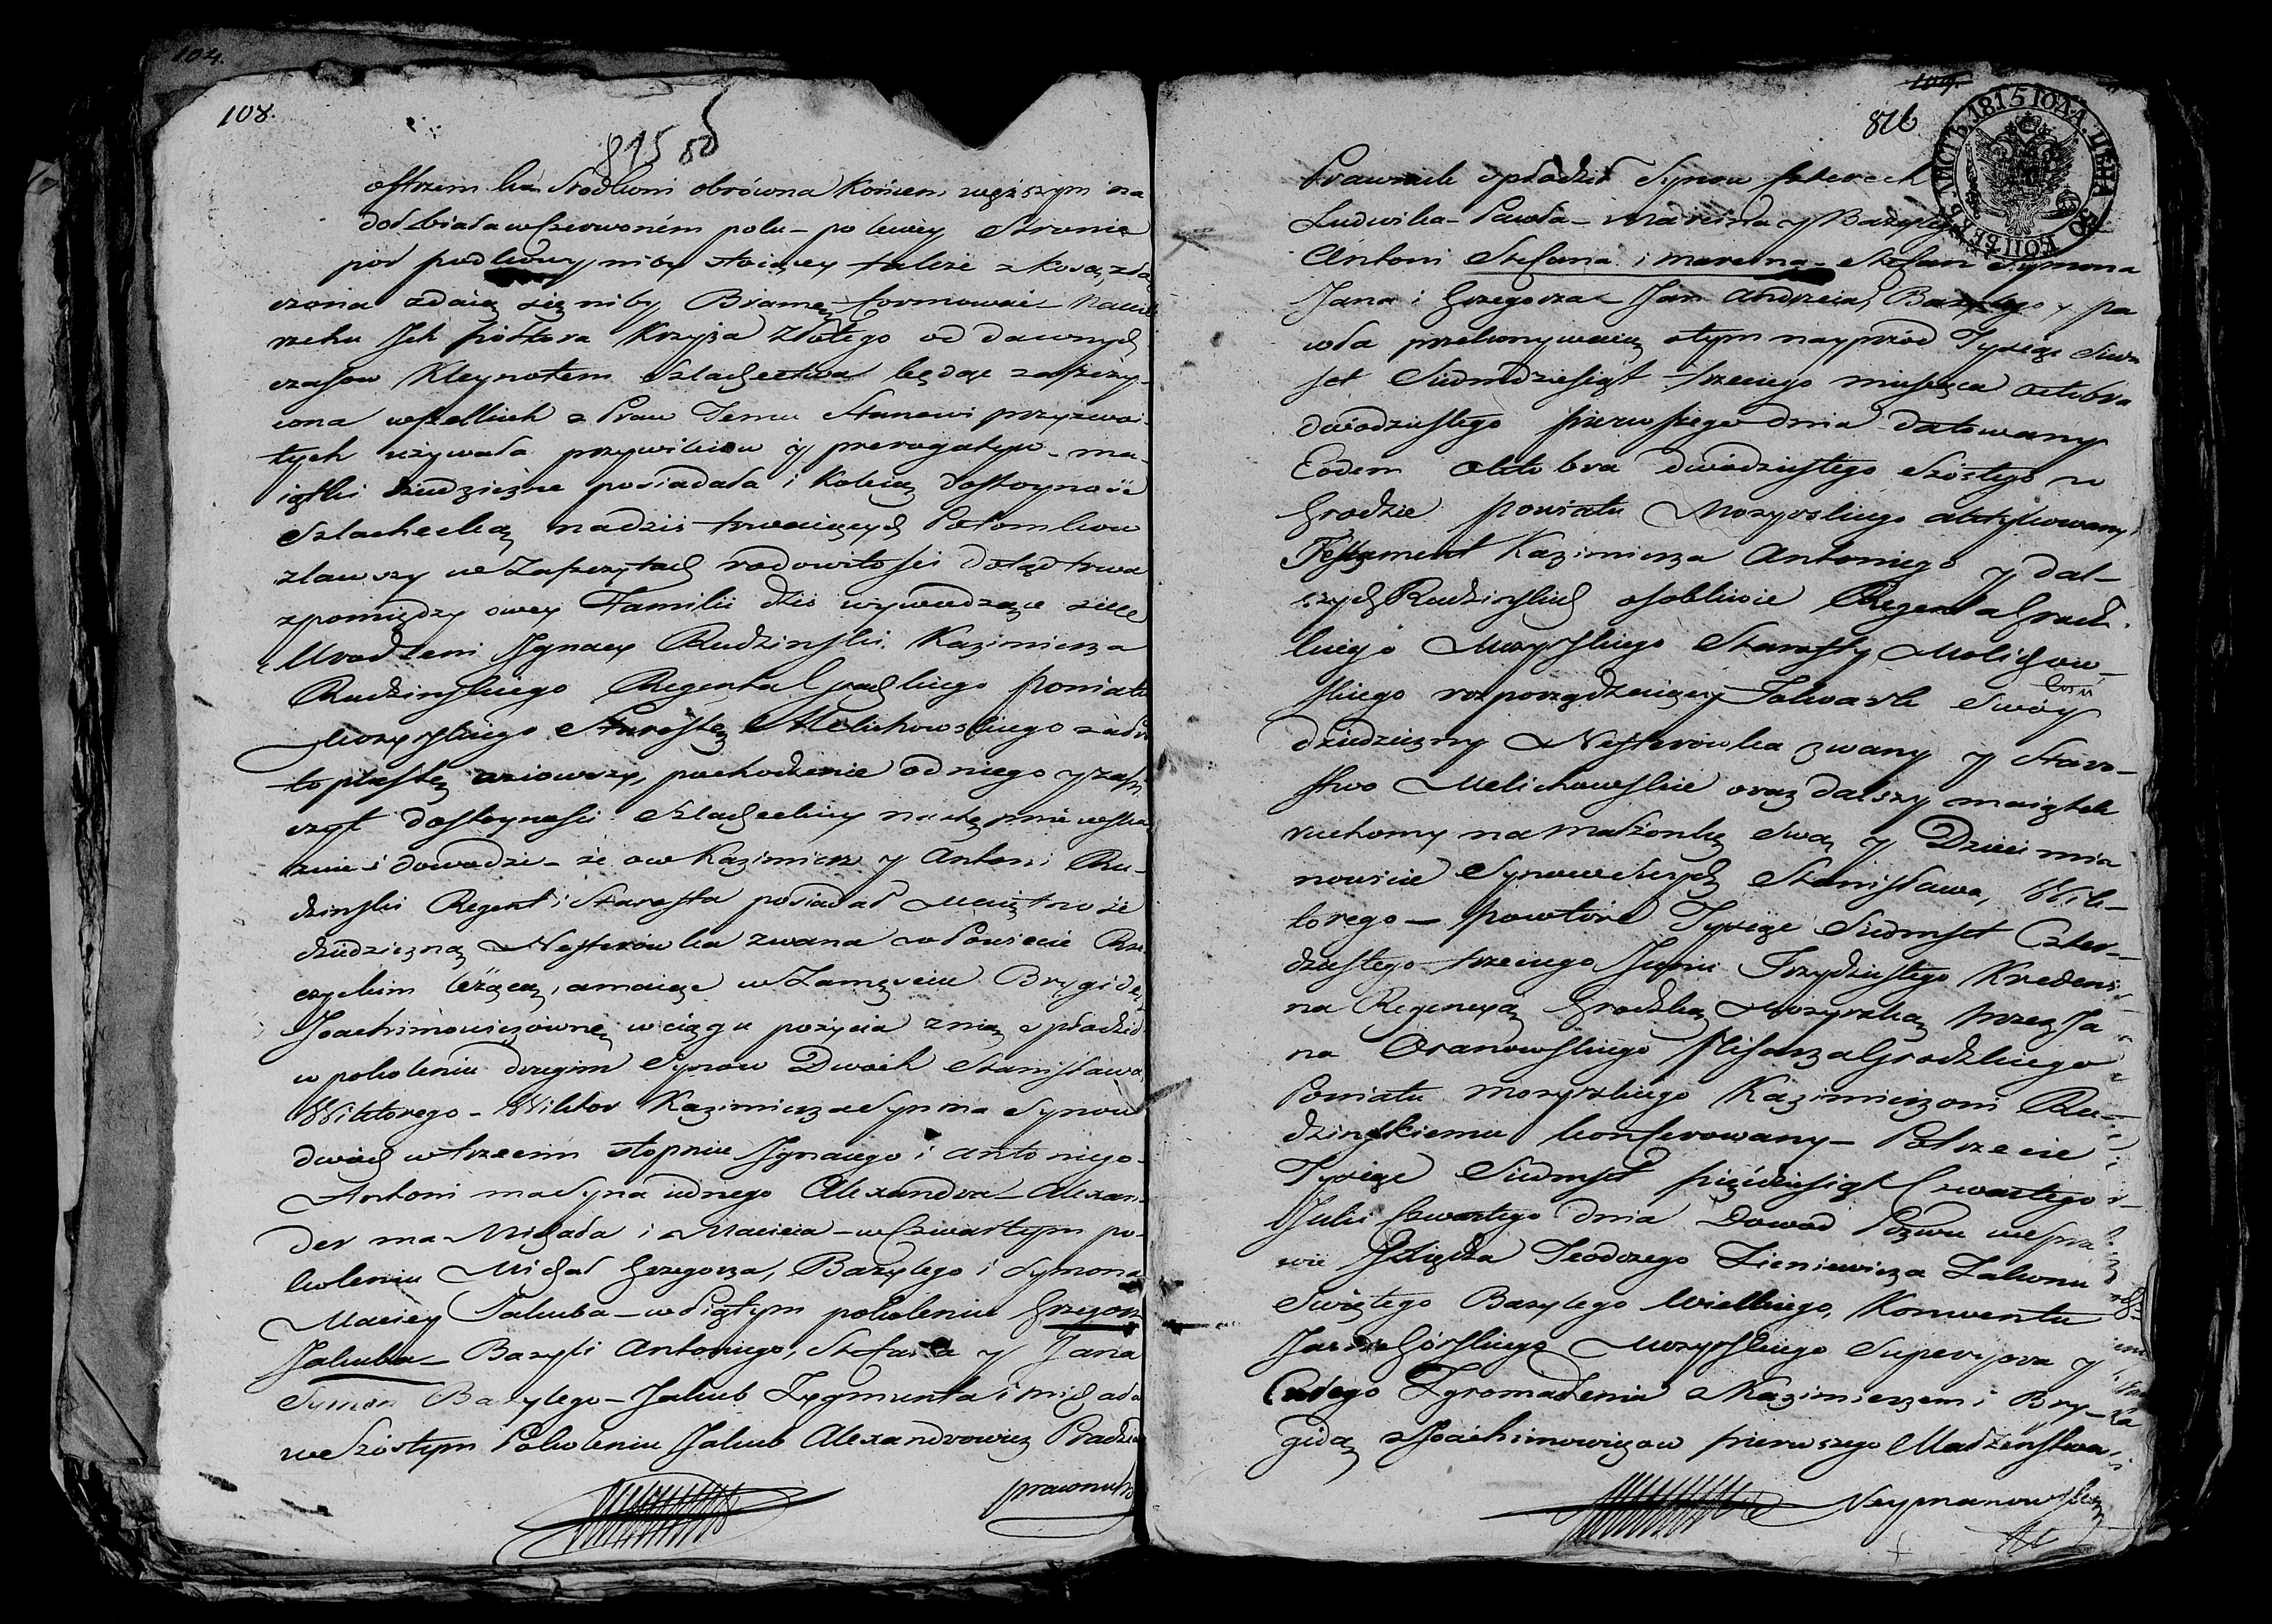 104.
108.
815
ostrzem ku Srodkowi obrócona Końcem węższym na
dół biała w Czerwoném polu – po lewey Stronie
pod podkowy niby stoiącey także z kosą złą
czona zdaią się niby Bramę formować – Na wie
rzchu Ich półtora Krzyża Złotego od dawnych
czasow Kleynotem Szlachectwa będąc zaszczy
cona wszelkich z Praw Temu Stanowi przyzwoi
tych używała przywileiow y prerogatyw – ma
iątki dziedziczne posiadała i Koleią dostoyność
Szlachecką na dziś trwaiących Potomkow
zlawszy w Zaszczytach rodowitości dotąd trwa
z pomiędzy owey Familii dziś wywodzące się
Urodzeni Ignacy Rudzinski Kazimierza
Rudzinskiego Regenta Grodzkiego Powiatu
Mozyrskiego Starostę Melichowskiego za
toplastę wziowszy, pochodzenie od niego y zasz
czyt dostoyności Szlacheckiey następnie
i dowodzi – że ow Kazimierz y Antoni Ru-
dzinski Regent i Starosta posiadał Maiętność
dziedziczną Nesterowka zwana w Powiecie Rze
czyckim leżącą, a maiąc w Zamęściu Brygidę
Joachimowiczownę w ciągu pożycia z nią spłodził
w pokoleniu drugim Synow Dwoch Stanisława
Wiktorego – Wiktor Kazimierza Syn ma Synow
dwoch w trzecim stopniu Ignacego i Antoniego
Antoni ma Syna iednego Alexandra – Alexan-
der ma Michała i Macieia – w Czwartym po-
koleniu Michał Grzegorza, Bazylego i Symona
Maciey Jakuba – w Piątym pokoleniu Grzegorz
Jakuba – Bazyli Antoniego, Stefana y Jana
Symon Bazylego – Jakub Zygmunta i Michała
w Szóstym Pokoleniu Jakub Alexandrowicz Pradziad
prawnuk
109.
816
ЛИСТЪ 1815 ГОДА. ЦѢНА 50 КОПѢЕКЪ
Prawnuk spłodził Synow czterech
Ludwika – Pawła – Marcina y Bazylego
Antoni Stefana i Marcina – Stefan Symona
Jana i Grzegorza – Jan Andrzeia, Bazylego y Pa
wła przekonywaią o tym nayprzód Tysiąc Siedm
set Siedmdziesiąt trzeciego miesiąca Octobra
dwódziestego pierwszego dnia datowany
Eodem Oktobra dwódziestego Szóstego w
Grodzie Powiatu Mozyrskiego aktykowany
Testament Kazimierza Antoniego y dal-
szych Rudzinskich osobliwie Regenta Grodz
kiego Mozyrskiego Starosty Melichow-
skiego rozporządzaiący Folwark Swóy
dziedziczny Nesterowka zwany y Staro-
stwo Melichowskie oraz dalszy maiątek
ruchomy na małżonkę Swą y Dzieci mia
nowicie Synow Swych Stanisława, Wik-
torego – powtóre Tysiąc Siedmset Czter-
dziestego trzeciego Junii Trzydziestego Kredens
na Regencyą Grodzką Mozyrską przez Ja
na Oranowskiego Pisarza Grodzkiego
Powiatu Mozyrskiego Kazimierzowi Ru-
dzinskiemu konferowany – Potrzecie
Tysiąc Siedmset pięćdziesiąt Czwartego
Julii Czwartego dnia Dowod Pozwu w spra
wie Xiędza Teodozego Zieniewicza Zakonu
Swiętego Bazylego Wielkiego, Konwentu
Jasnogórskiego Mozyrskiego Superyora y
Całego Zgromadzenia z Kazimierzem i Bry-
gidą z Joachimowiczow pierwszego Małżeństwa
Neymanowską